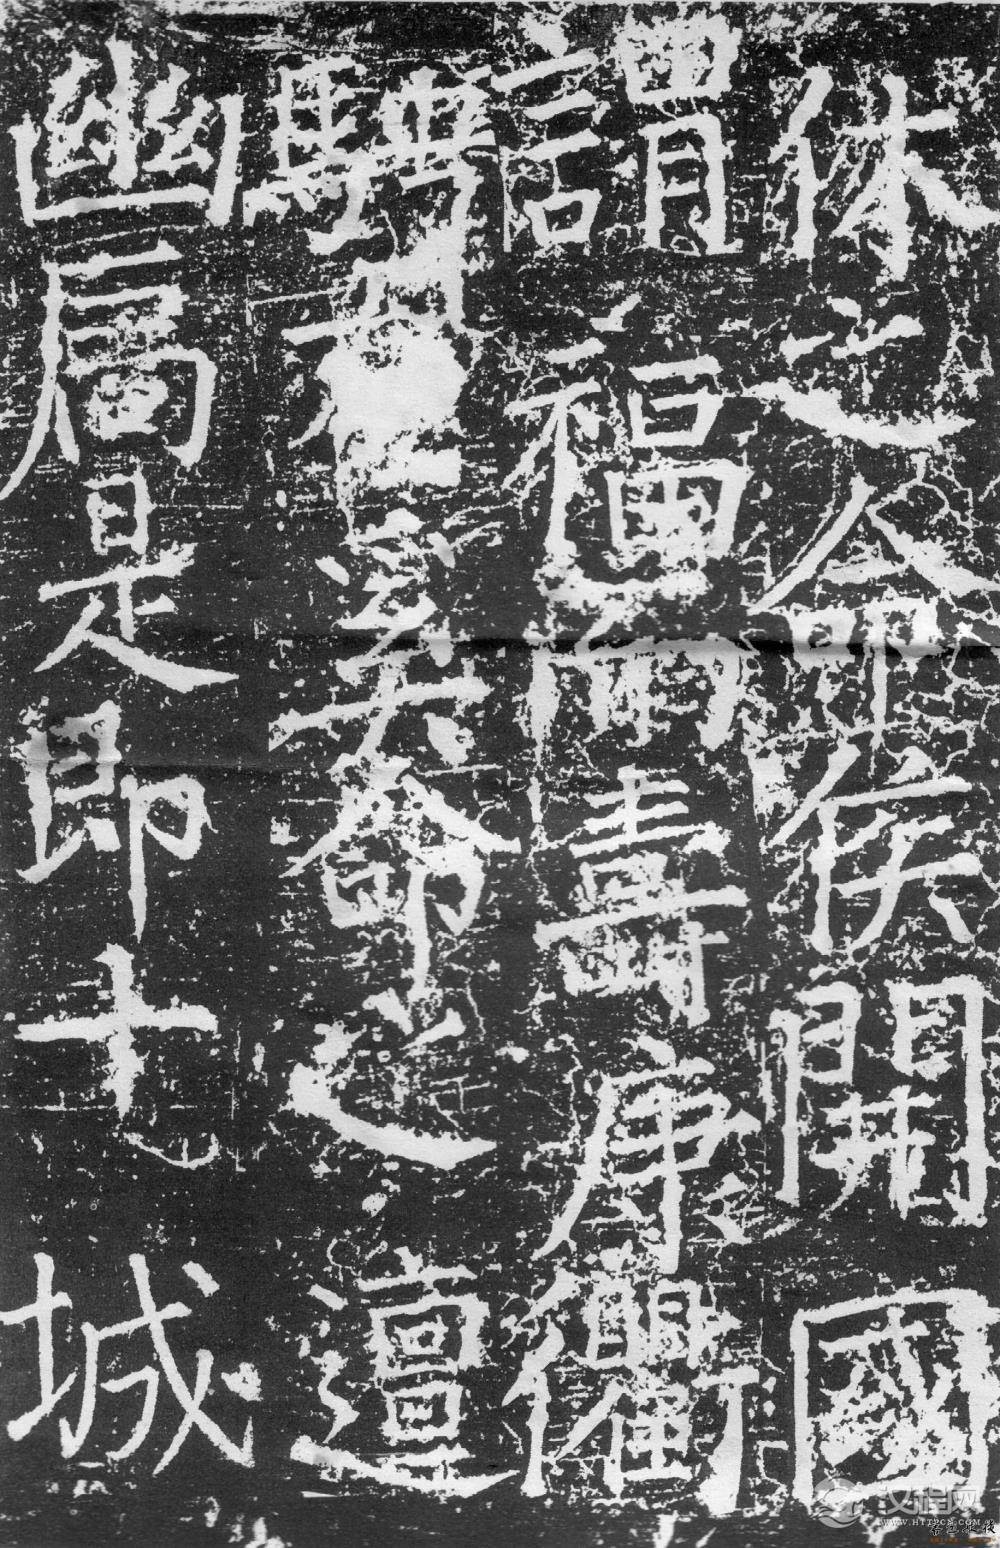 休之命侯開國
謂福而壽康衢
奚命之邅
幽扃是即十城
汉程网
WWW.HTTPCN.COM